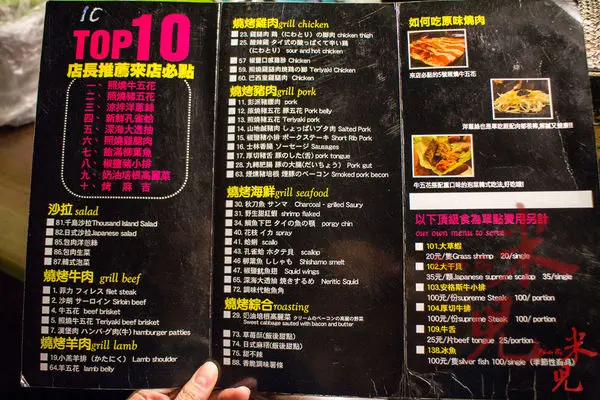 1C
TOP10
店長推薦來店必點
一、照燒牛五花
二、照燒豬五花
三、涼拌洋蔥絲
四、新鮮孔雀蛤
五、深海大透抽
六、照燒雞腿肉
七、飽滿柳葉魚
八、椒鹽豬小排
九、奶油培根高麗菜
十、烤 麻 吉
沙拉 salad
81.千島沙拉Thousand Island Salad
82.日式沙拉Japanese salad
85.包肉洋蔥絲
86.包肉生菜
87.韓式泡菜
燒烤牛肉 grill beef
1. 菲力 フィレス filet steak
2. 沙朗 サーロイン Sirloin beef
4. 牛五花 beef brisket
5. 照燒牛五花 Teriyaki beef brisket
7. 漢堡肉 ハンバーグ肉(牛) hamburger patties
燒烤羊肉 grill lamb
19.小羔羊排 (かたにく) Lamb shoulder
64.羊五花 lamb belly
燒烤雞肉 grill chicken
23. 雞腿肉 鶏 (にわとり) の脚肉 chicken thigh
25. 酸辣雞 タイ式の酸っぱくて辛い鶏
(にわとり) sour and hot chicken
57 椒鹽口感雞胗 Chicken
59 照燒雞腿肉焼鶏の腳 Teriyaki Chicken
60. 巴西里腿腿肉 Chicken
燒烤豬肉 grill pork
11. 澎派豬腰肉 pork
12. 原燒豬五花 豚五花 Pork belly
13. 照燒豬五花 Teriyaki pork
14. 山地鹹豬肉 しょっぱいブタ肉 Salted Pork
15. 椒鹽豬小排 ポークステーキ Short Rib Pork
16. 士林香腸 ソーセージ Sausages
17. 厚切豬舌 豚のした(舌) pork tongue
18. 九層肥腸 豚の大腸(だいちょう) Pork gut
63. 煙燻豬培根 煙豚のベーコン Smoked pork becon
燒烤海鮮 grill seafood
30. 秋刀魚 サンマ Charcoal - grilled Saury
31. 野生甜紅蝦 shrimp flaked
34. 鯛魚下巴 タイの魚の顎 porgy chin
40. 花枝 イカ spray
41. 蛤蜊 scallo
43. 孔雀蛤 ホタテ貝 scallop
46. 柳葉魚 ししゃも Shishamo smelt
47. 椒鹽魷魚翅 Squid wings
65. 深海大透抽 焼きするめ Neritic Squid
72. 調味代魷魚角
燒烤綜合roasting
29. 奶油培根高麗菜 クリームのベーコンの高麗の野菜
Sweet cabbage sauted with bacon and butter
73. 草莓酥(飯後甜點)
74. 日式麻吉(飯後甜點)
75. 甜不辣
88. 香脆調味薯條
如何吃原味燒肉
來店必點的5號照燒牛五花
牛五花搭配重口味的泡菜韓式吃法,好吃喔!
以下頂級食為單點費用另計
our own menu to serve
101.大草蝦
20元/隻Grass shrimp 20/single
102.大干貝
35元/顆Japanese supreme scallop 35/single
103.安格斯牛小排
100元/份supreme Steak 100/ portion
104.厚切牛排
100元/份supreme Steak 100/portion
109.牛舌
25元/片beef tongue 25/portion
138.冰魚
100元/隻silver fish 100/single (季節性漁獲)